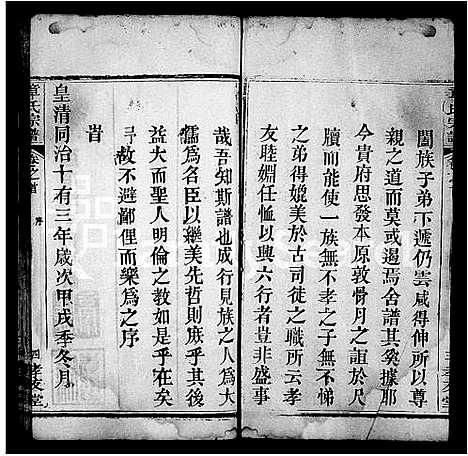 闔族子弟下遞仍雲咸得伸所以尊
親之道而莫或遏焉舍譜其奚據耶
今貴府思發本原敦骨月之誼於尺
牘而能使一族無不孝之子無不悌
之弟得媲美於古司徒之職所云孝
友睦婣任恤以興六行者豈非盛事
哉吾知斯譜也成行見族之人為大
儒為名臣以繼美先哲則庶乎其後
益大而聖人明倫之教如是乎在矣
尋故不避鄙俚而樂為之序
旹
皇清同治十有三年歲次甲戌季冬月
章氏宗譜
卷之首
序
四
孝友堂